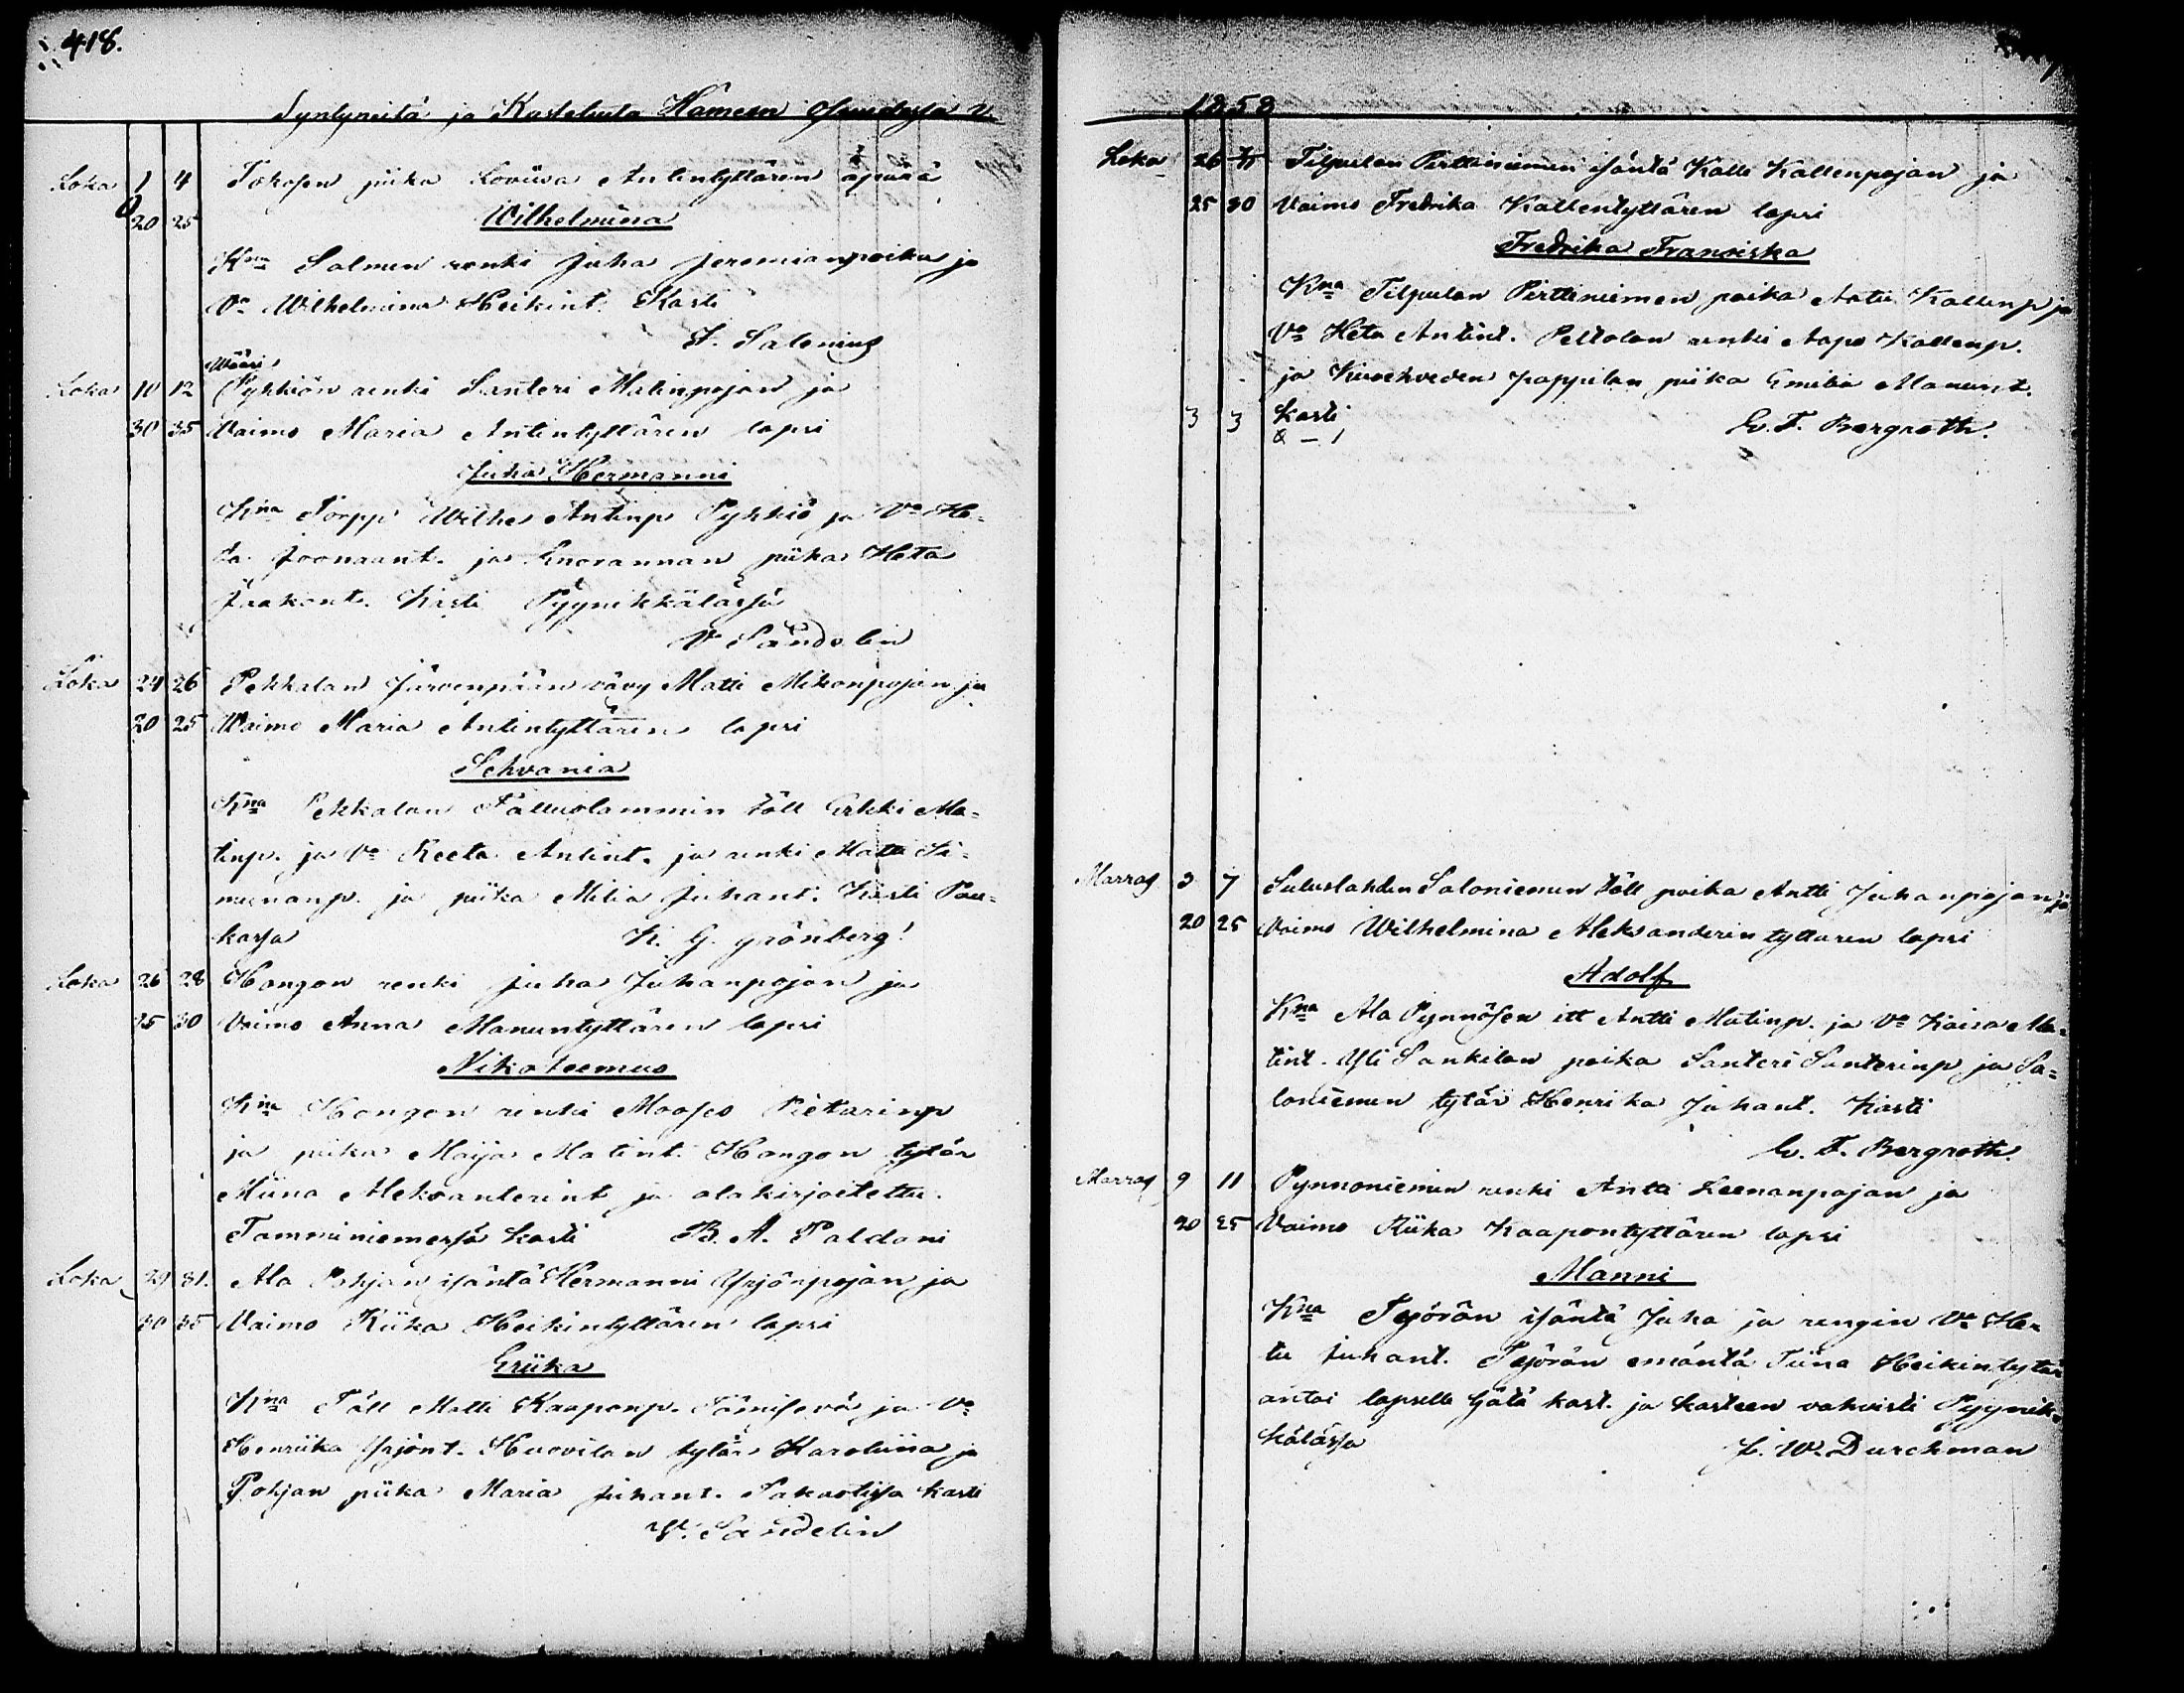 418.
Syntyneitä ja Kastetuita Hameen V.
Loka 1 4 Tokosen piika Loviisa Antintyttären äpärä
20 25
Wilhelmina
Kna Salmen renki Juha Jeremianpoika ja
Vo Wilhelmina Heikint. Kasti
F. Salenius
Wääri
Loka 10 12 Pykkiön renki Santeri Matinpojan ja
30 35 Vaimo Maria Antintyttären lapsi
Juha Hermanni
Kna Torpp Wilhe Antinp Pykkiö ja Vo He-
ta Joonaant. ja Enorannan piika Heta
Jaakont. Kasti Pyynikkälässä
V Sandelin
Loka 24 26 Pekkalan Järvenpään vävy Matti Mikonpojan ja
20 25 Waimo Maria Antintyttären lapsi
Sehvania
Kna Pekkalan Palluolammin töll Erkki Ma-
tinp. ja Vo Reeta Antint. ja renki Matti Si-
munanp. ja piika Milia Juhant. Kasti Pau-
kassa K. G. Grönberg.
Loka 26 28 Hangon renki Juha Juhanpojan ja
25 30 Vaimo Anna Manuntyttären lapsi
Nikoteemus
Kna Hongon renki Mooses Pietarinp
ja piika Maija Matint. Hangon tytär
Miina Aleksanterint ja alakirjoitettu.
Tamminiemessä kasti B. A. Paldani
Loka 29 31. Ala Pohjan isäntä Hermanni Yrjönpojan ja
30 35 Vaimo Riika Heikintyttären lapsi
Eriika
Kna Töll Matti Kaaponp. Tämisevä ja Vo
Henriika Yrjönt. Huovilan tytär Karoliina ja
Pohjan piika Maria Juhant. kasti
V. Sandelin
1858
Loka 26 Tilpulan Pirttiniemen isäntä Kalle Kallenpojan ja
25 30 Vaimo Fredrika Kallentyttären lapsi
Fredrika Fransiska
Kna Tilpulan Pirttiniemen poika Antti Kallenp ja
Vo Heta Antint. Peltolan renki Aapo Kallenp.
ja Kirvehveden pappilan piika Emilia Manunt.
3 3 kasti E. F. Bergroth.
Marras 3 7 Suluslahden Saloniemen töll poika Antti Juhanpojan ja
20 25 Vaimo Wilhelmina Aleksanderintyttären lapsi
Adolf
Kna Ala Pynnösen itt Antti Matinp. ja Vo Kaisa Ma-
tint. Yli Sankilan poika Santeri Santerinp ja Sa-
loniemen tytär Henrika Juhant. Kasti
E. F. Bergroth.
Marras 9 11 Pynnoniemen renki Antti Leenanpojan ja
20 25 Vaimo Riika Kaapontyttären lapsi
Manni
Kna Työrän isäntä Juha ja rengin Vo He-
ta Juhant. Työrän emäntä Tiina Heikintytär
antoi lapselle hätä kast. ja kasteen vahvisti Pyynik-
kälässä F. W. Durchman